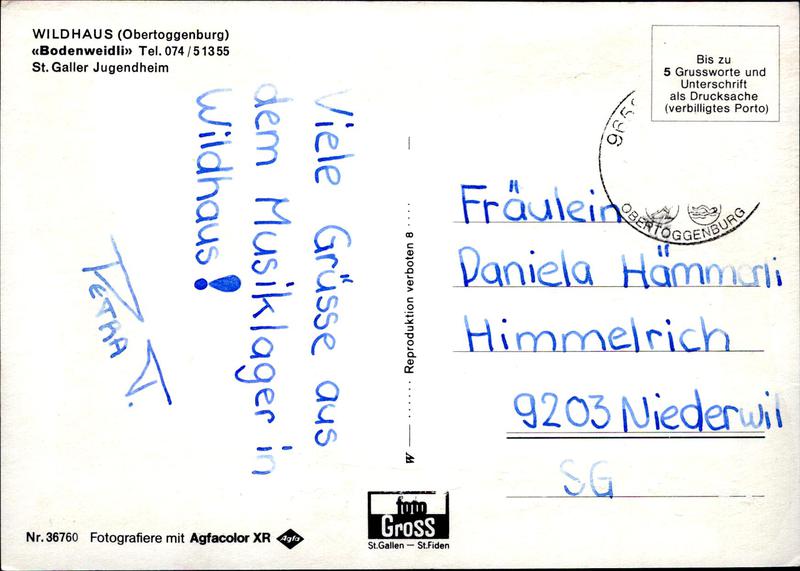 WILDHAUS (Obertoggenburg)
«Bodenweidli» Tel. 074/51355
St. Galler Jugendheim
Bis zu
5 Grussworte und
Unterschrift
als Drucksache
(verbilligtes Porto)
OBERTOGGENBURG
Viele Grüsse aus
dem Musiklager in
Wildhaus!
PETRA J.
W Reproduktion verboten 8
Fräulein
Daniela Hämmerli
Himmelrich
9203 Niederwil
SG
Nr. 36760 Fotografiere mit Agfacolor XR Agfa
foto
Gross
St.Gallen — St.Fiden